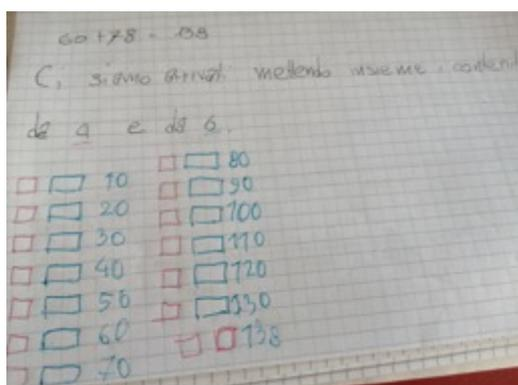 60+78 = 138
Ci siamo arrivati mettendo insieme i contenit
da 9 e da 6.
10
20
30
40
50
60
70
80
90
100
110
120
130
138